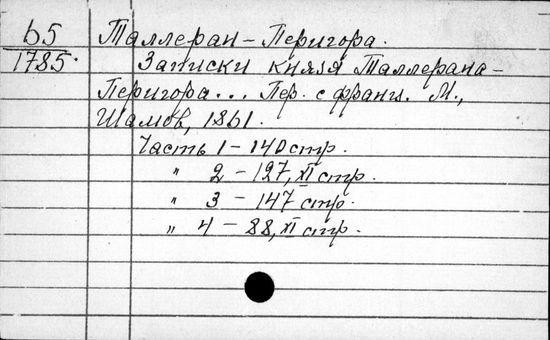 b5
1785.
Таллеран-Перигора.
Записки князя Таллерана-
Перигора... Пер. с франц. М.,
Шамов, 1861.
Часть 1 - 140 стр.
" 2 - 127, XI стр.
" 3 - 147 стр.
" 4 - 88, XI стр.